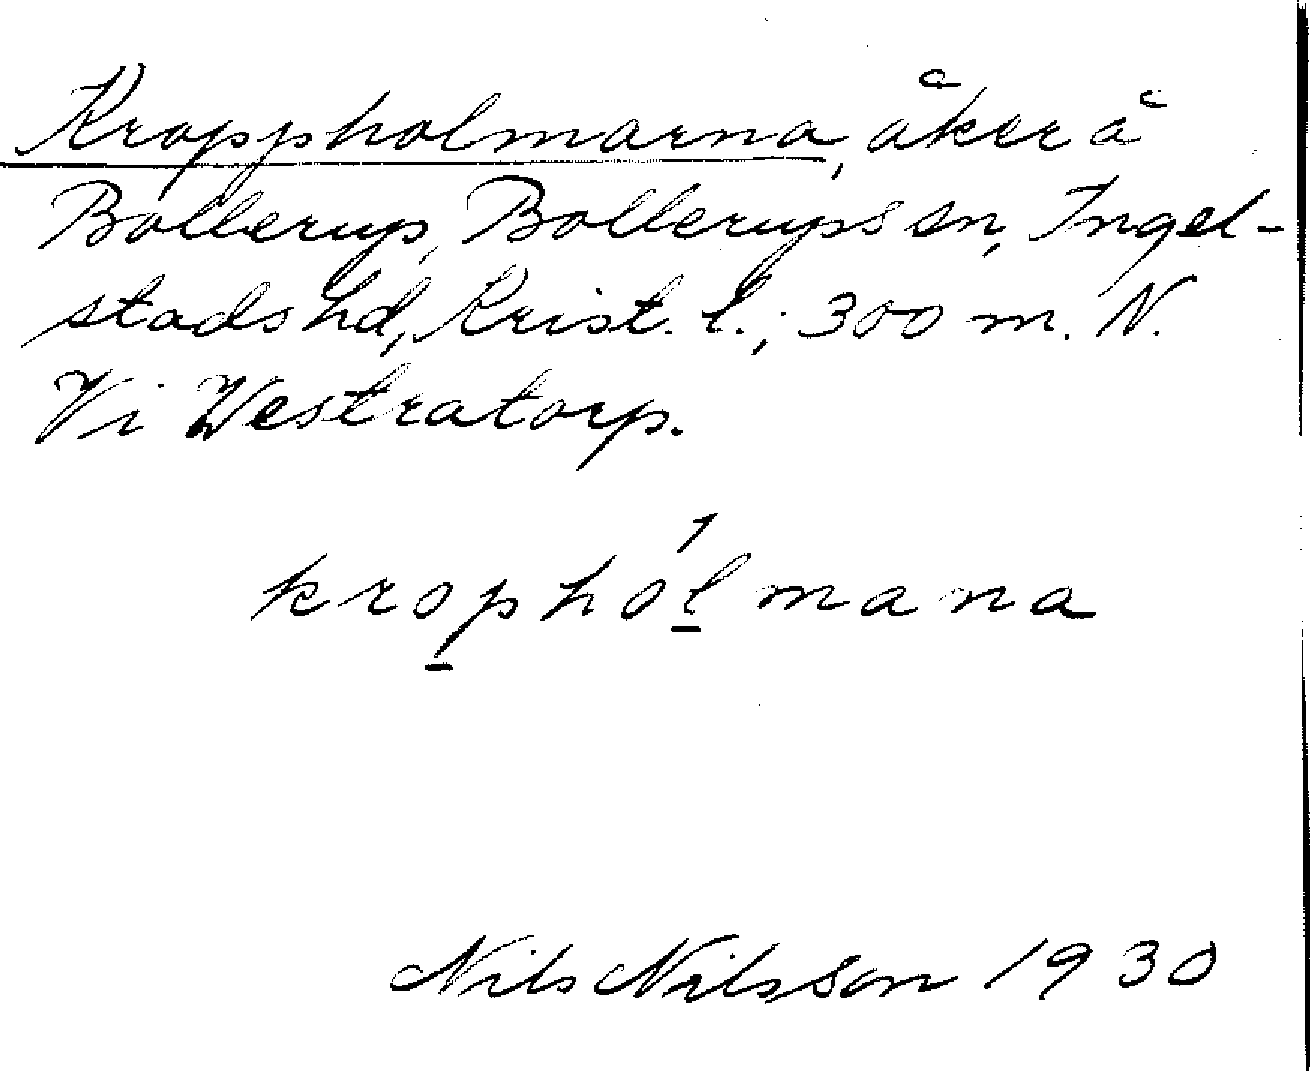 Kroppholmarna, åker å
Bollerup, Bollerups sn, Ingel-
stads hd, Krist. l.; 300 m. N.
Vi Westratorp.
krophólmana
Nils Nilsson 1930